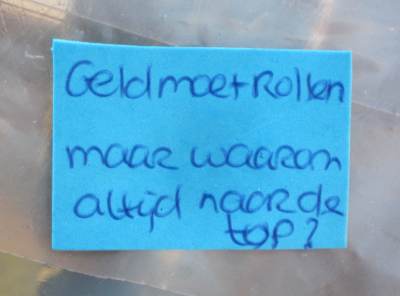 Geld moet Rollen
maar waarom
altijd naar de
top?